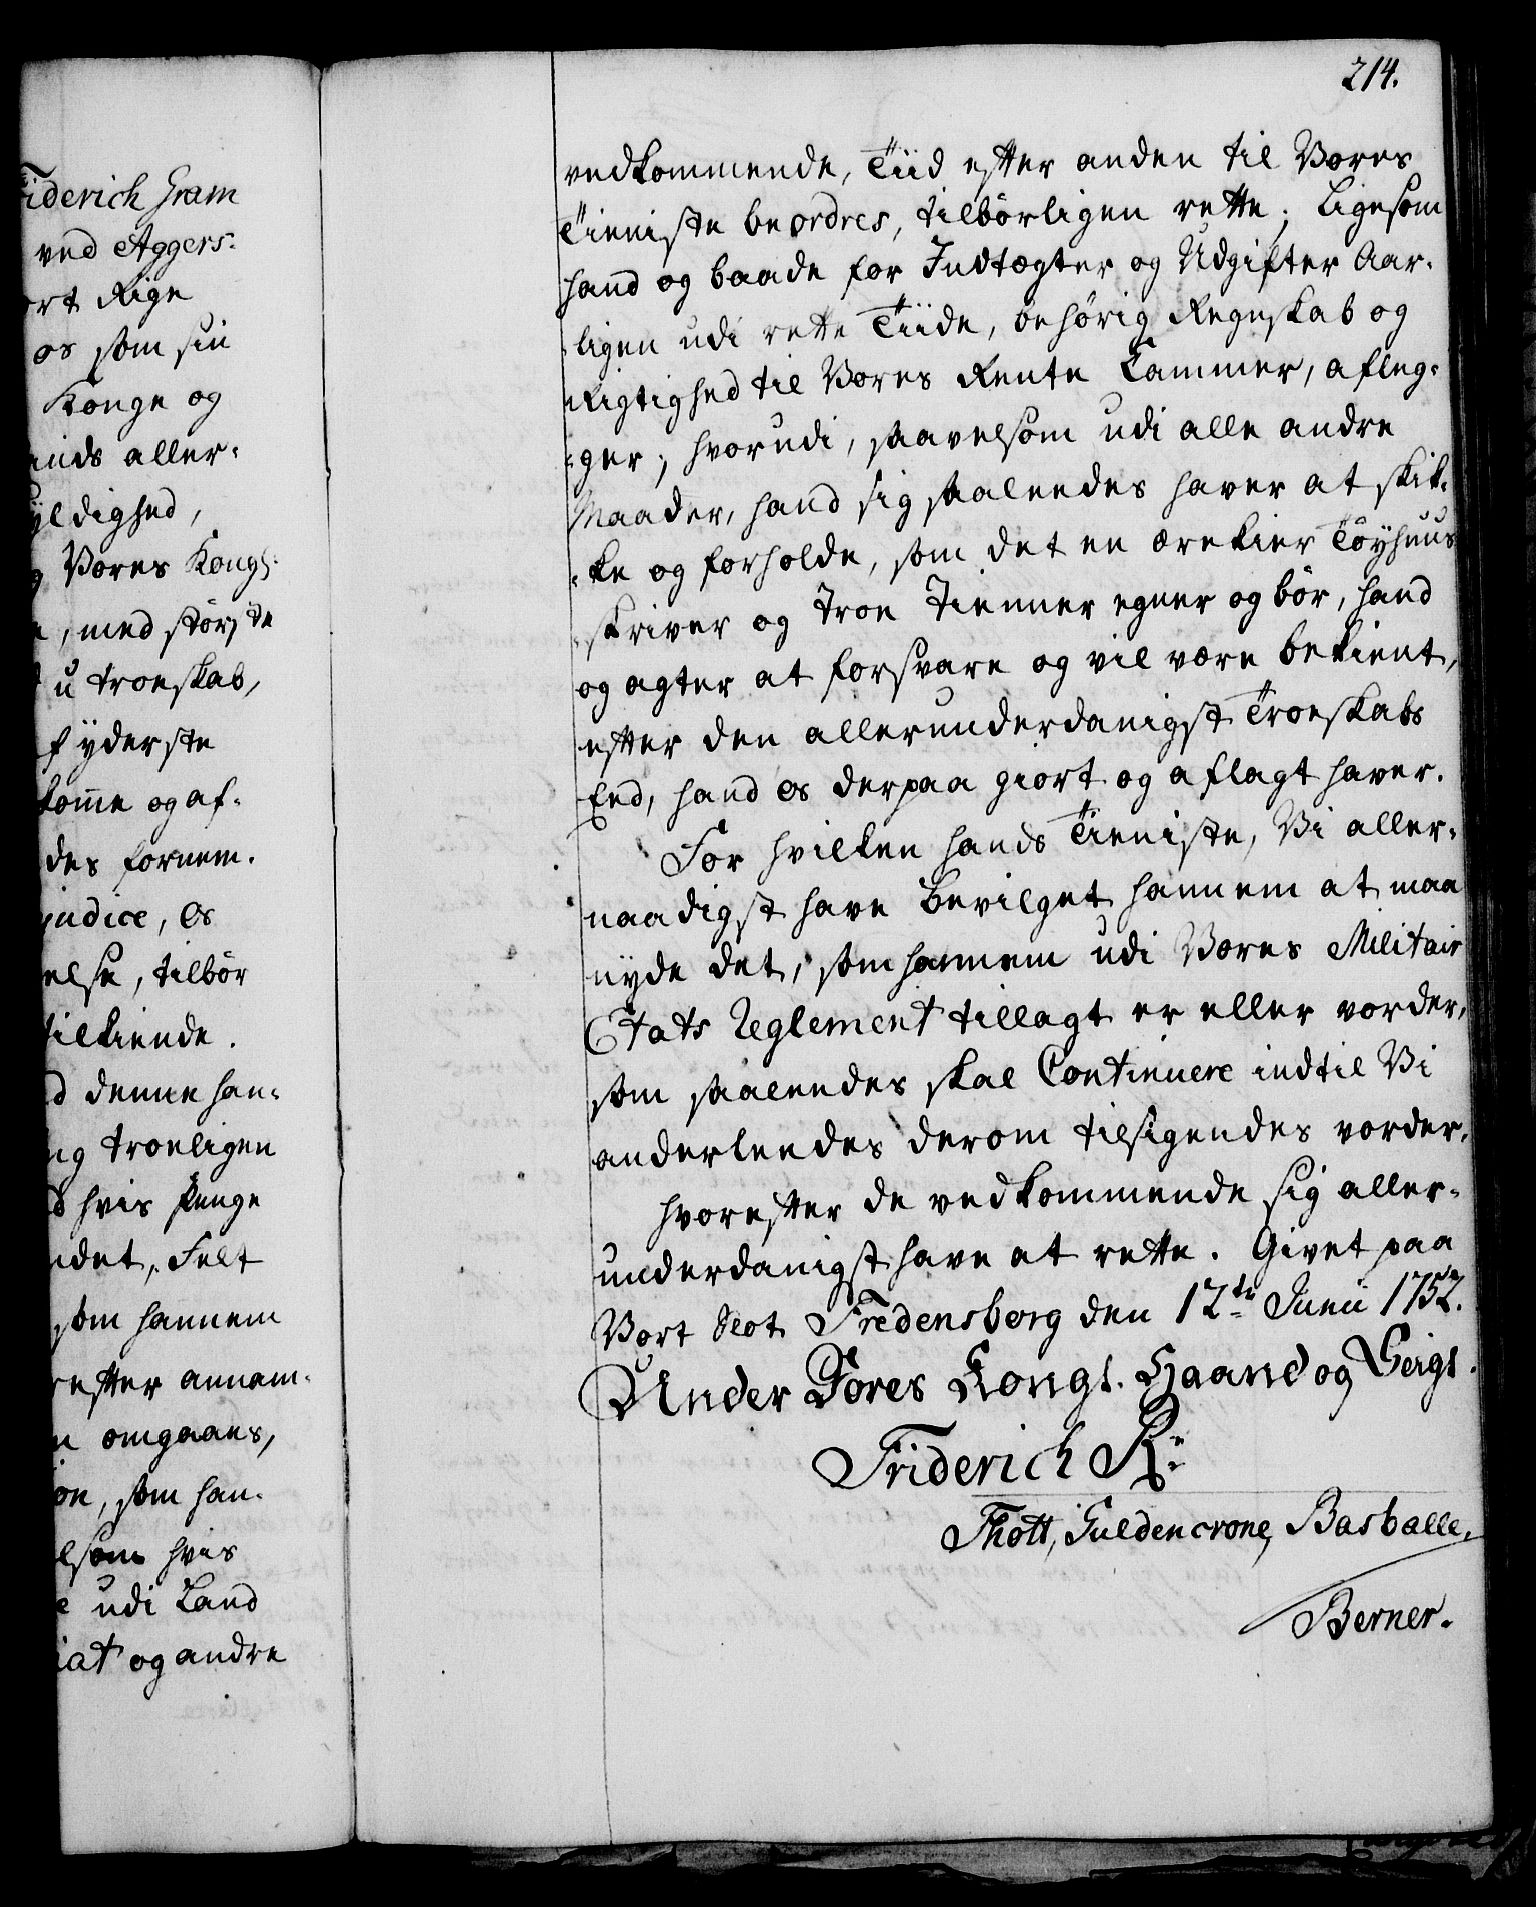 iderich Gram
ved Aggers:
ort Rige
os som sin
Konge og
inds aller-
yldighed,
Vores Kongl:
, med störste
u troeskab,
f yderste
komme og af-
des fornem.
judice, os
else, tilbör
tilkiende.
d denne han-
ng troeligen
d hvis Penge
ndet, Felt
som hannem
refter annam-
n omgaaes,
on, som han-
lsom hvis
e udi Land
iat og andre
214.
vedkommende, Tiid efter anden til Vores
Tieniste beordres, tilbörligen rette; Ligesom
hand og baade for Indtægter og Udgifter Aar-
ligen udi rette Tiide, behörig Regnskab og
Rigtighed til Vores Rente Cammer, afleg-
ger; hvorudi, saavelsom udi alle andre
Maader, hand sig saaleedes haver at skik-
ke og forholde, som det en ærekier Töyhuus
skriver og troe Tienner egner og bör, hand
og agter at forsvare og vil være bekient,
efter den allerunderdanigst Troeskabs
Eed, hand os derpaa giort og aflagt haver.
For hvilken hands Tieniste, Vi aller-
naadigst have bevilget hannem at maa
nyde det, som hannem udi Vores Militair
Etats Reglement tillagt er eller vorder,
som saaleedes skal Continuere indtil Vi
anderleedes derom tilsigendes vorder.
Hvorefter de vedkommende sig aller-
underdanigst have at rette. Givet paa
Vort Slot Fredensborg den 12te Junii 1752.
Under Vores Kongl. Haand og Seigl.
Friderich R:
Thott, Guldencrone, Basballe,
Berner.